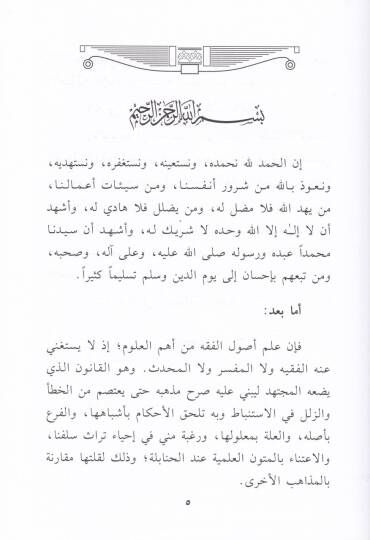 بسم الله الرحمن الرحيم
إن الحمد لله نحمده، ونستعينه، ونستغفره، ونستهديه،
ونعوذ بالله من شرور أنفسنا، ومن سيئات أعمالنا،
من يهد الله فلا مضل له، ومن يضلل فلا هادي له، وأشهد
أن لا إله إلا الله وحده لا شريك له، وأشهد أن سيدنا
محمداً عبده ورسوله صلى الله عليه، وعلى آله، وصحبه،
ومن تبعهم بإحسان إلى يوم الدين وسلم تسليماً كثيراً.
أما بعد:
فإن علم أصول الفقه من أهم العلوم؛ إذ لا يستغني
عنه الفقيه ولا المفسر ولا المحدث. وهو القانون الذي
يضعه المجتهد ليبني عليه صرح مذهبه حتى يعتصم من الخطأ
والزلل في الاستنباط وبه تلحق الأحكام بأشباهها، والفرع
بأصله، والعلة بمعلولها، ورغبة مني في إحياء تراث سلفنا،
والاعتناء بالمتون العلمية عند الحنابلة؛ وذلك لقلتها مقارنة
بالمذاهب الأخرى.
٥